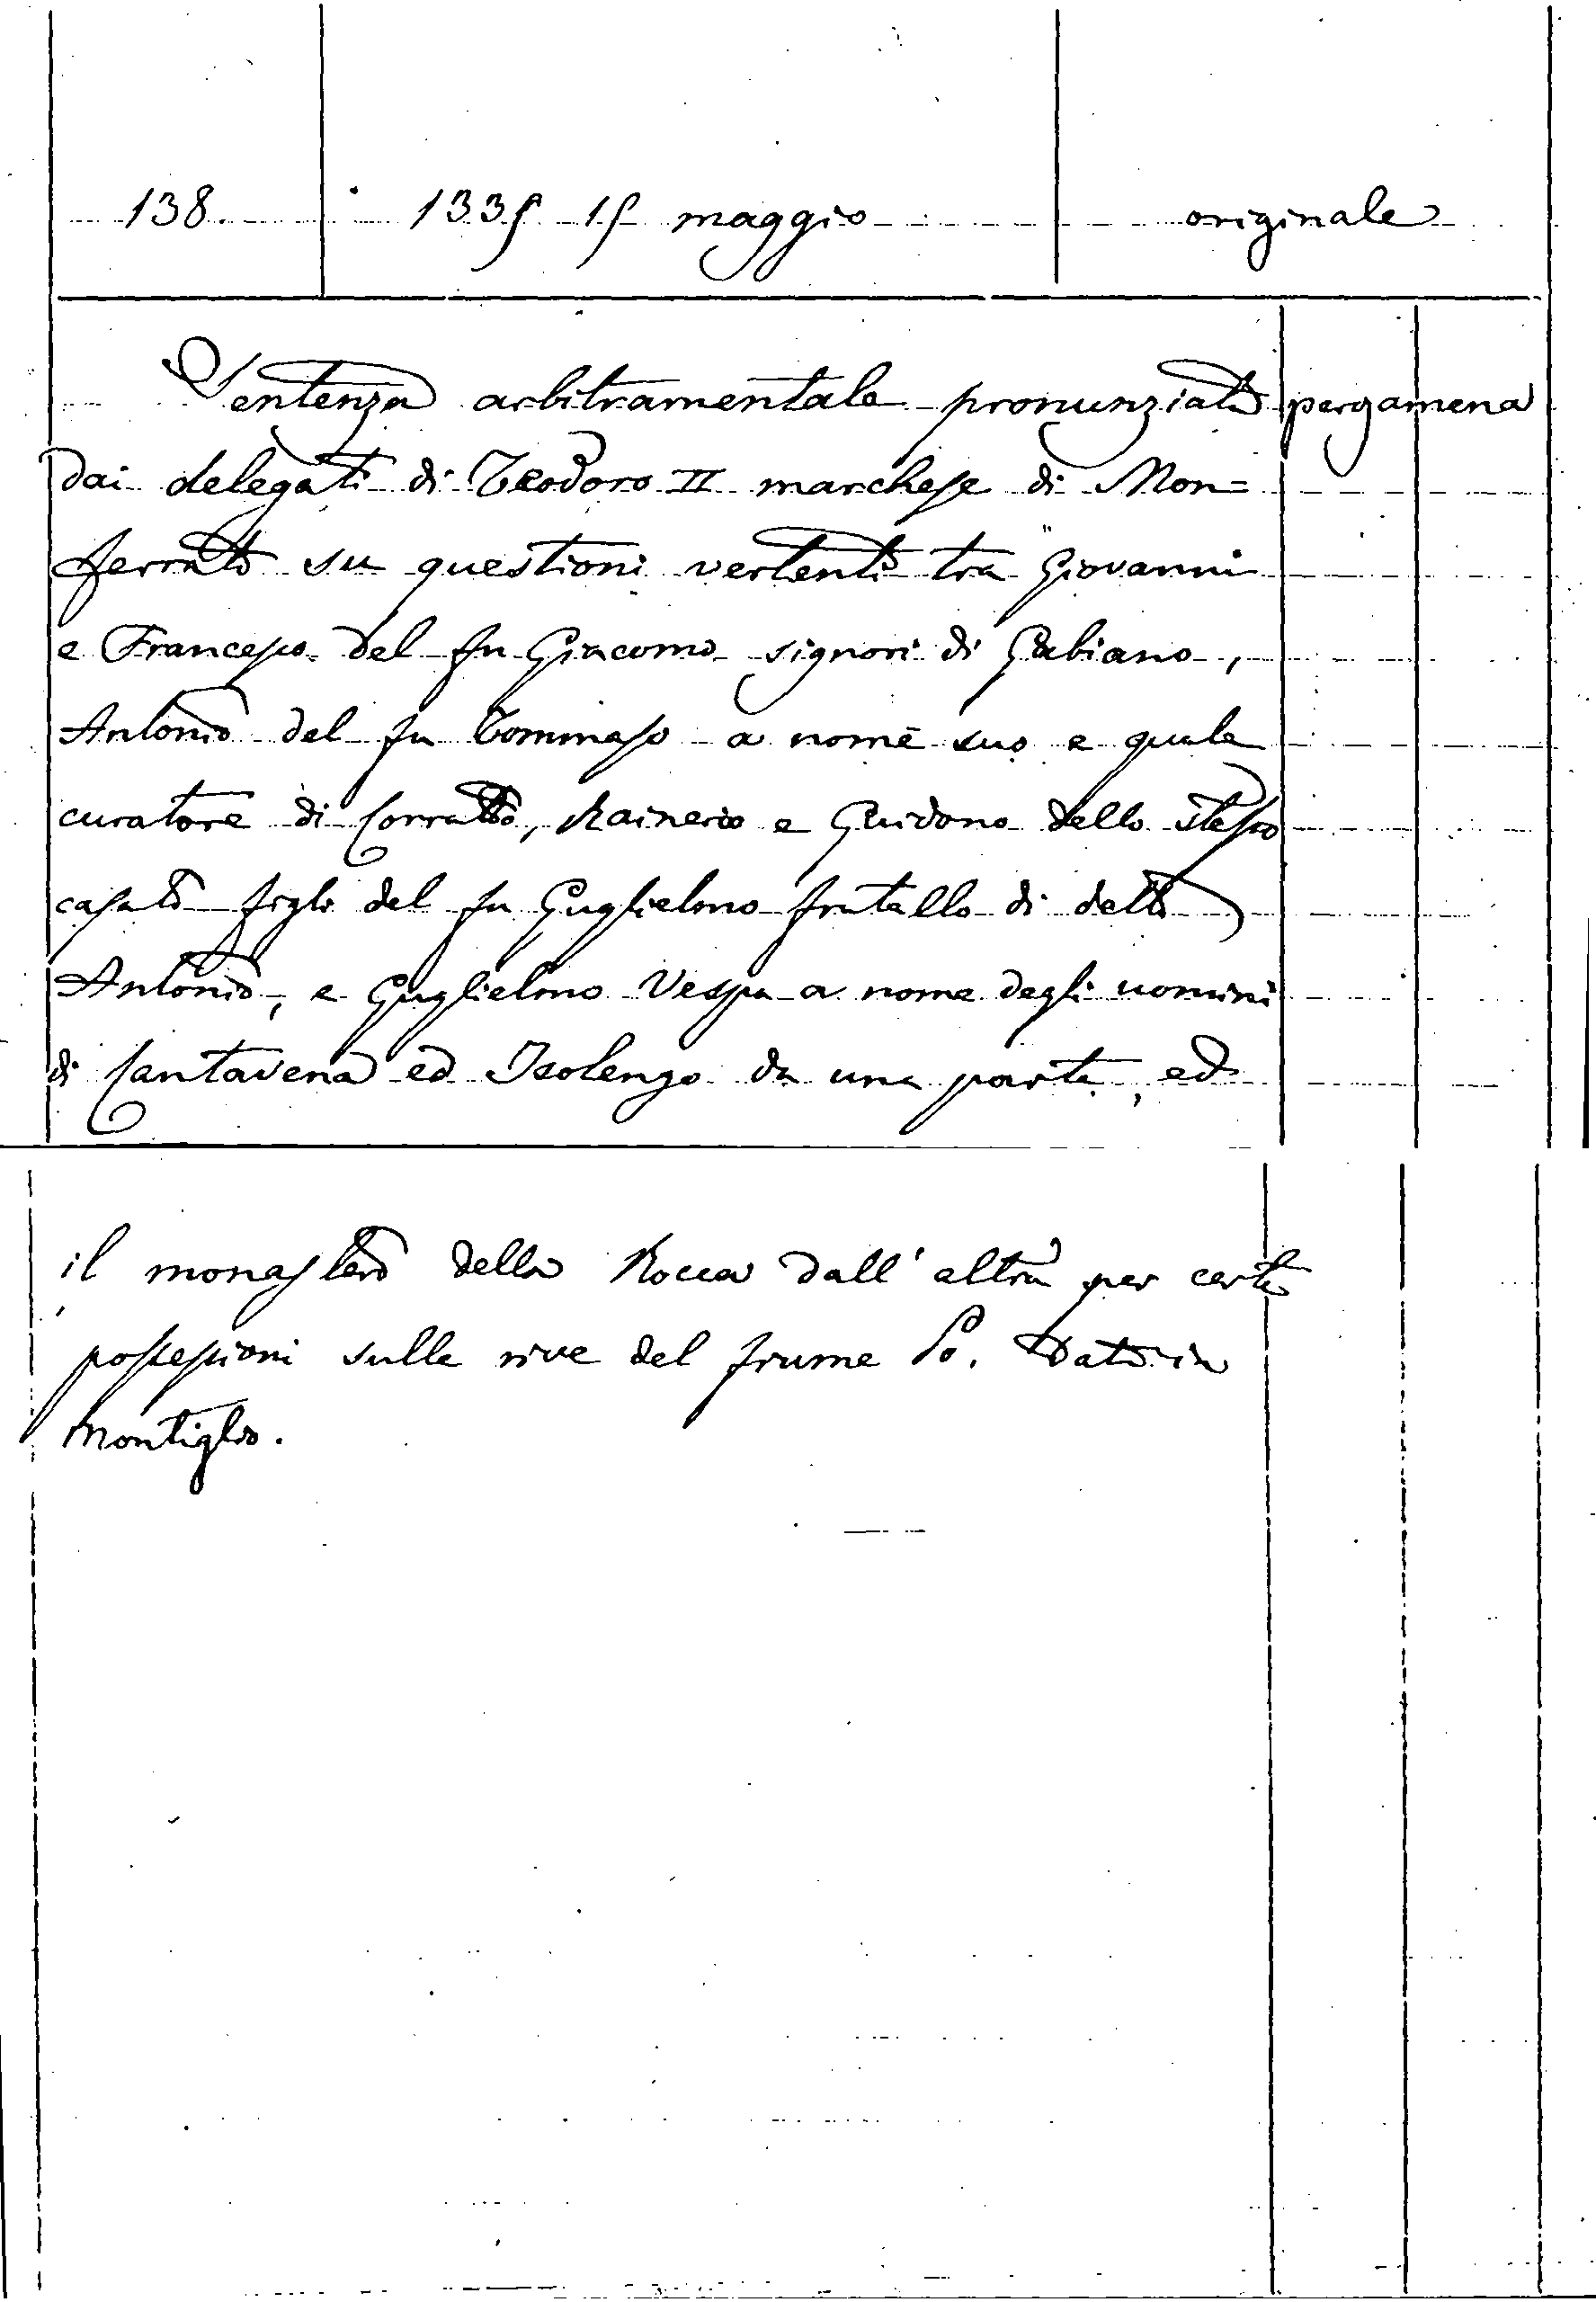 138. 1335 15 maggio originale
Sentenza arbitramentale pronunziata pergamena
dai delegati di Teodoro II marchese di Mon=
ferrato su questioni vertenti tra Giovanni
e Francesco del fu Giacomo signori di Gabiano,
Antonio del fu Tommaso a nome suo e quale
curatore di Corrado, Rainerio e Guidono dello stesso
casato figli del fu Guglielmo fratello di detto
Antonio, e Guglielmo Vespa a nome degli uomini
di Cantavena ed Isolengo da una parte, ed
il monastero della Rocca dall'altra per certe
possessioni sulle rive del fiume Po. Dato in
Montiglio.